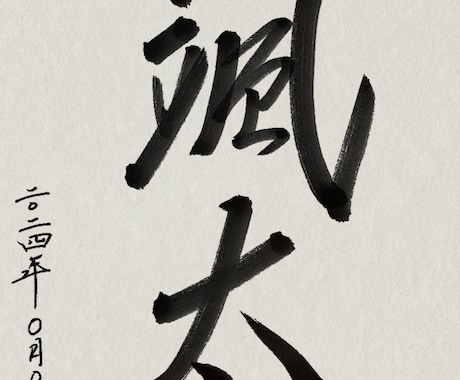 颯太
二〇二四年〇月〇